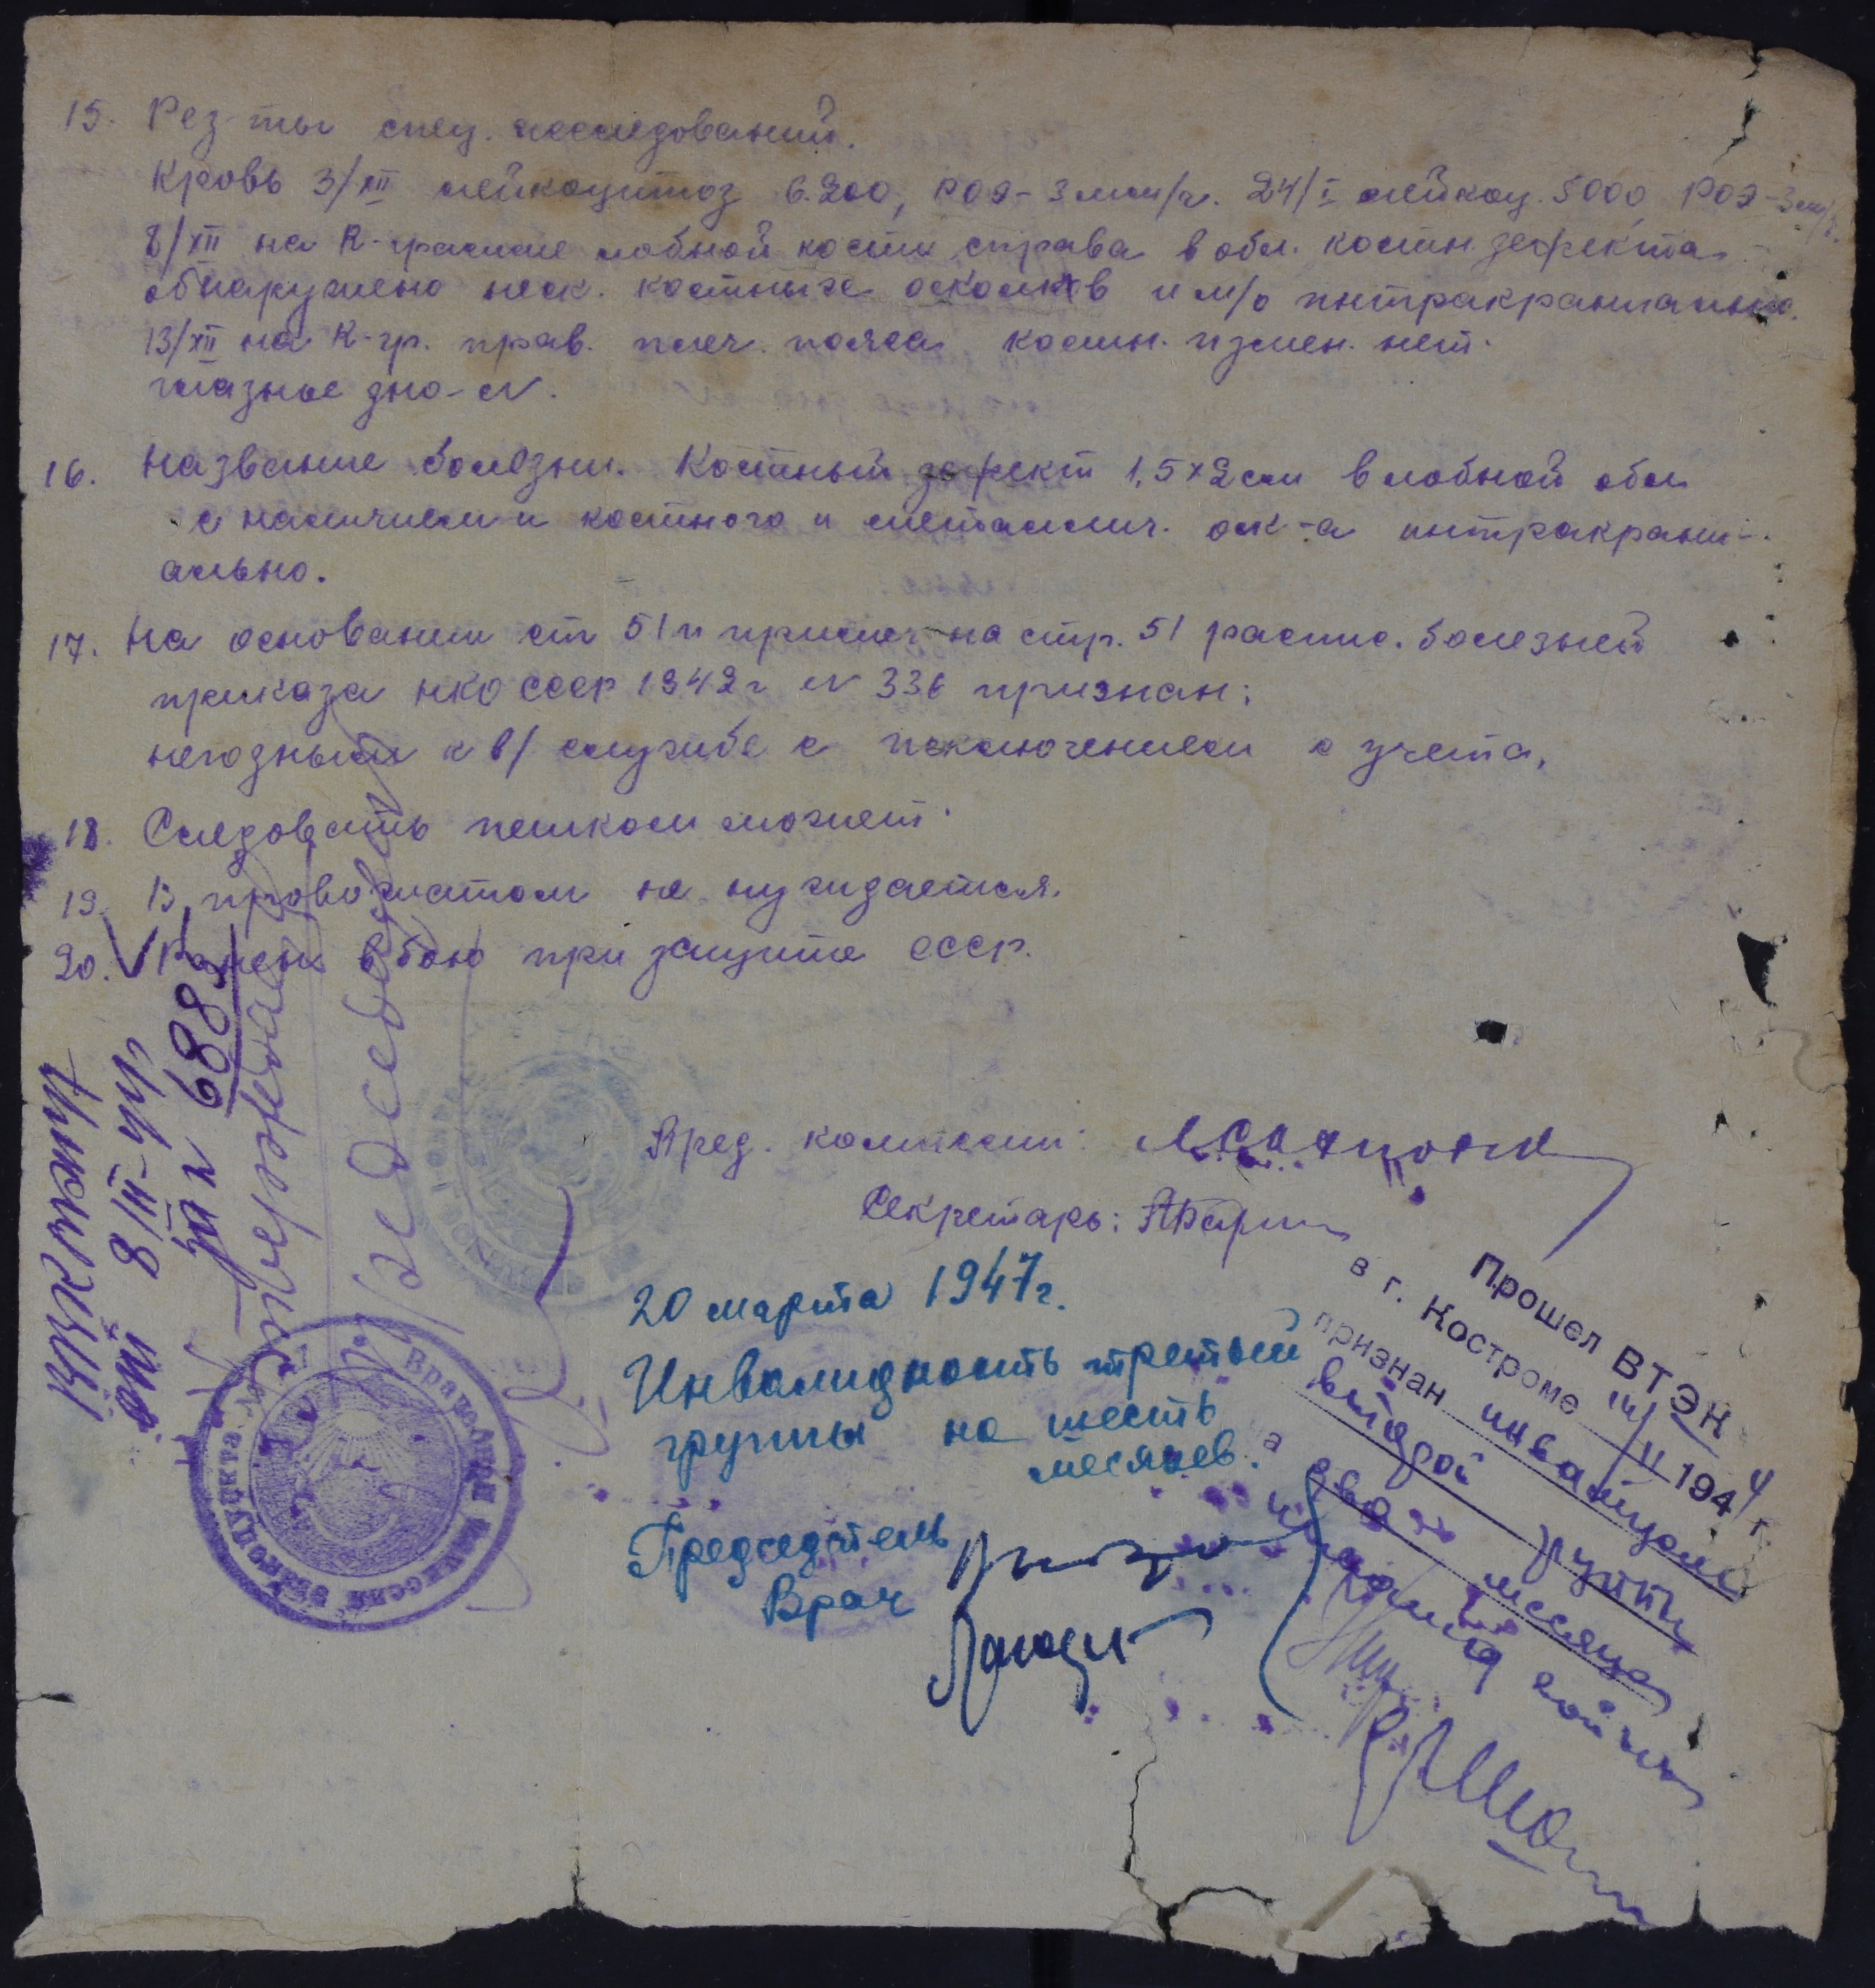 15. Рез-ты спец. исследований.
Кровь 3/XII лейкоцитоз 6.200, РОЭ-3мм/ч. 24/I лейкоц. 5000 РОЭ-3мм/ч.
8/XII на R-грамме лобной кости справа в обл. костн. дефекта
обнаружено неск. костных осколков и м/о интракраниально.
13/XII на R-гр. прав. плеч. пояса костн. измен. нет.
глазное дно - N.
16. Название болезни. Костный дефект 1,5×2см в лобной обл.
с наличием и костного и металлич. оск-а интракрани-
ально.
17. На основании ст 51 и примеч на стр. 51 распис. болезней
приказа НКО СССР 1942г N 336 признан:
негодным к в/службе с исключением с учета.
18. Следовать пешком может.
19. В провожатом не нуждается.
20. Ранен в бою при защите СССР.
8/III-44
за N 688
Пред. комиссии:
Секретарь:
20 марта 1947г.
Инвалидность третьей
группы на шесть
месяцев.
Председатель
Врач
Прошел ВТЭК
в г. Костроме II 1944 г.
признан инвалидом
второй группы
два месяца
Врачебная Комиссия